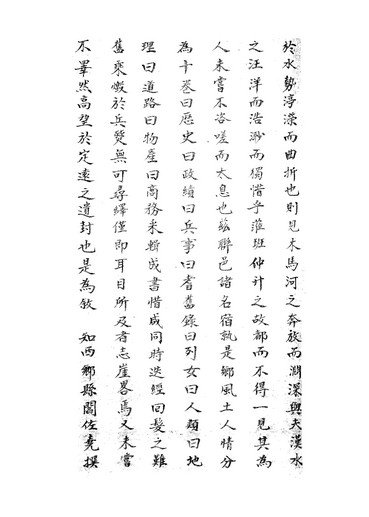 於水勢渟濴而曲折也則見木馬河之奔放而淵深與夫漢水
之汪洋而浩渺而獨惜乎范班仲升之故部而不得一見其為
人未嘗不咨嗟而太息也茲聯邑諸名宿就是鄉風土人情分
為十卷曰歷史曰政績曰兵事曰耆舊錄曰列女曰人類曰地
理曰道路曰物產曰商務釆輯成書惜咸同時迭經回髮之難
舊乘燬於兵燹無可尋繹僅即耳目所及者志崖畧焉又未嘗
不睾然高望於定遠之遺封也是為敘 知西鄉縣閻佐堯撰